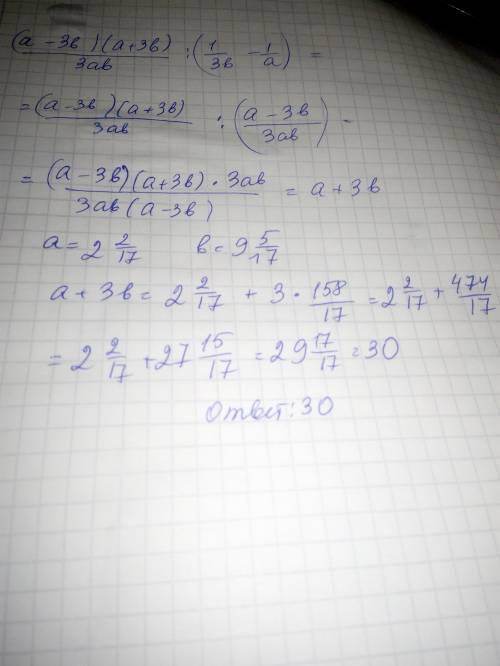 (a - 3в)(a+3в)/3ав : (1/3в - 1/a) =
= (a-3в)(a+3в)/3ав : (a - 3в/3ав) =
= (a - 3в)(a+3в) · 3ав/3ав(a-3в) = a + 3в
a = 2 2/17 в = 9 5/17
a + 3в = 2 2/17 + 3 · 158/17 = 2 2/17 + 474/17
= 2 2/17 + 27 15/17 = 29 17/17 = 30
Ответ: 30